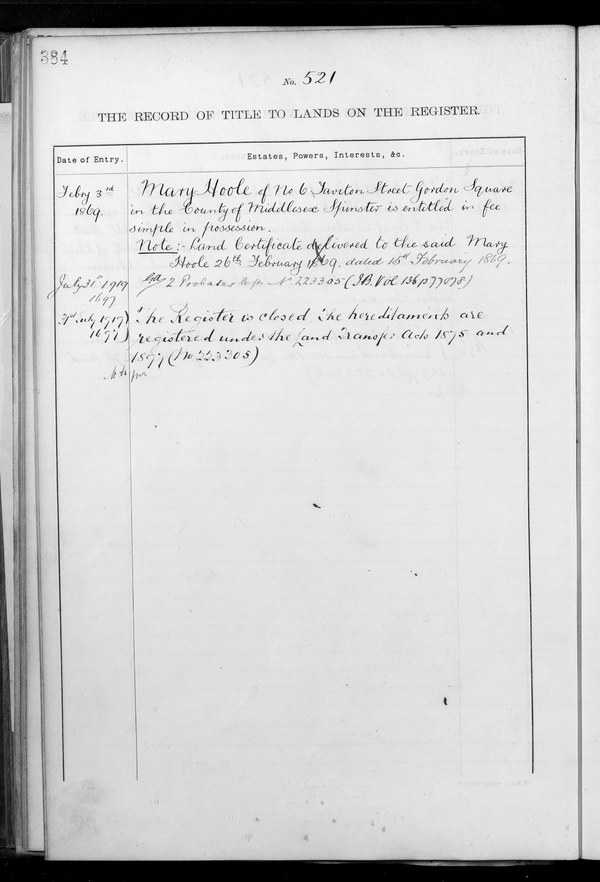 384
No. 521
THE RECORD OF TITLE TO LANDS ON THE REGISTER.
Date of Entry. Estates, Powers, Interests, &c.
Febry 3rd 1869. Mary Hoole of No 6 Taviton Street Gordon Square
in the County of Middlesex Spinster is entitled in fee
simple in possession.
Note:- Land Certificate delivered to the said Mary
Hoole 26th February 1869. dated 15th February 1869.
July 31st 1919 2 Probates No 223305 (I.B. Vol 136 p 77078)
1697
31st July 1919) The Register is closed The hereditaments are
1697) registered under the Land Transfer Acts 1875 and
1897 (No 223305)